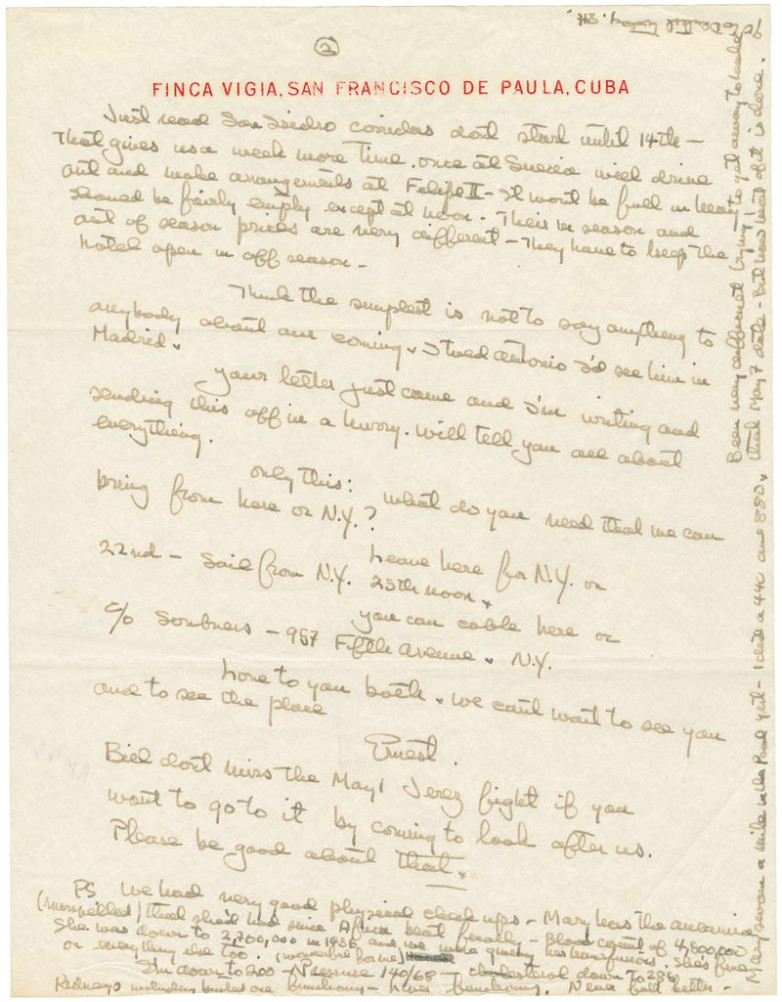 (2)
FINCA VIGIA, SAN FRANCISCO DE PAULA, CUBA
Just read San Isidro corridas dont start until 14th —
That gives us a week more time. once at Suecia will drive
out and make arrangements at Felipe II — It wont be full in
should be fairly empty except at noon. Their in season and
out of season prices are very different — They have to keep the
hotel open in off season —
Think the simplest is not to say anything to
anybody about our coming. I told Antonio I'd see him in
Madrid.
Your letter just came and I'm writing and
sending this off in a hurry. Will tell you all about
everything.
only this: What do you need that we can
bring from here or N.Y.?
Leave here for N.Y. on
22nd — Sail from N.Y. 25th noon.
You can cable here or
c/o Scribners — 597 Fifth Avenue. N.Y.
Love to you both. We cant wait to see you
and to see the place
Ernest.
Bill dont miss the May 1 Jerez fight if you
want to go to it by coming to look after us.
Please be good about that.
PS We had very good physical check ups — Mary has the anaemia
(misspelled) that she'd had since Africa beat finally — Blood count of 4,800,000
She was down to 2,700,000 in 1956 and
or everything else too.
I'm down to 200 — Pressure 140/68 — cholesterol down to
Kidneys
Been very difficult trying to get away to make
that May 7 date — But now most of it is done.
Mary swam a mile in the Pool yest — I did a 440 and 880.